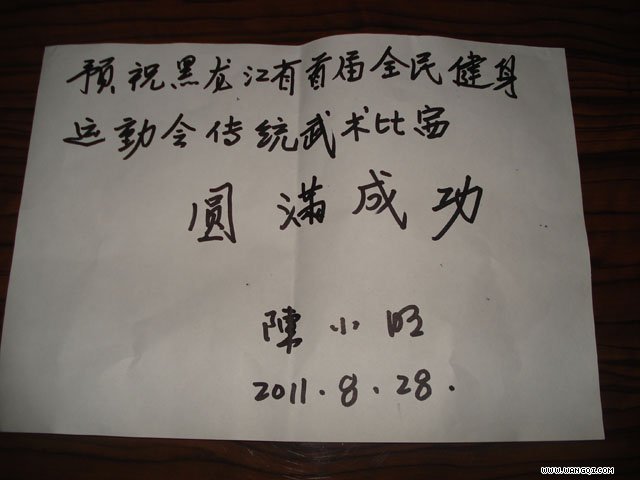 预祝黑龙江省首届全民健身
运动会传统武术比赛
圆满成功
陳小旺
2011.8.28.
WWW.WANGQI.COM